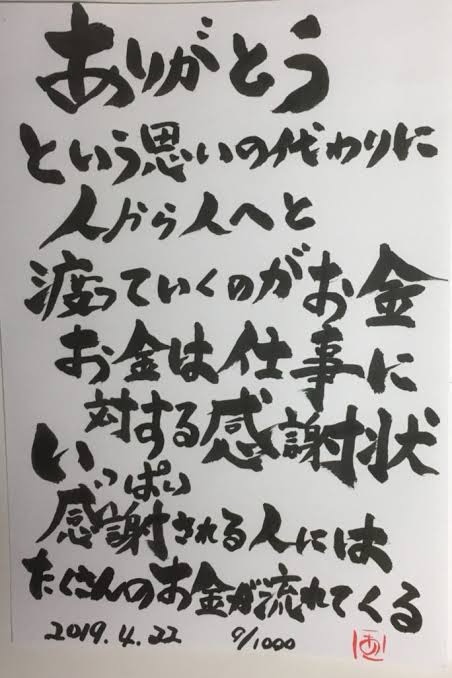 ありがとう
という思いの代わりに
人から人へと
渡っていくのがお金
お金は仕事に
対する感謝状
いっぱい
感謝される人には
たくさんのお金が流れてくる
2019.4.22 9/1000